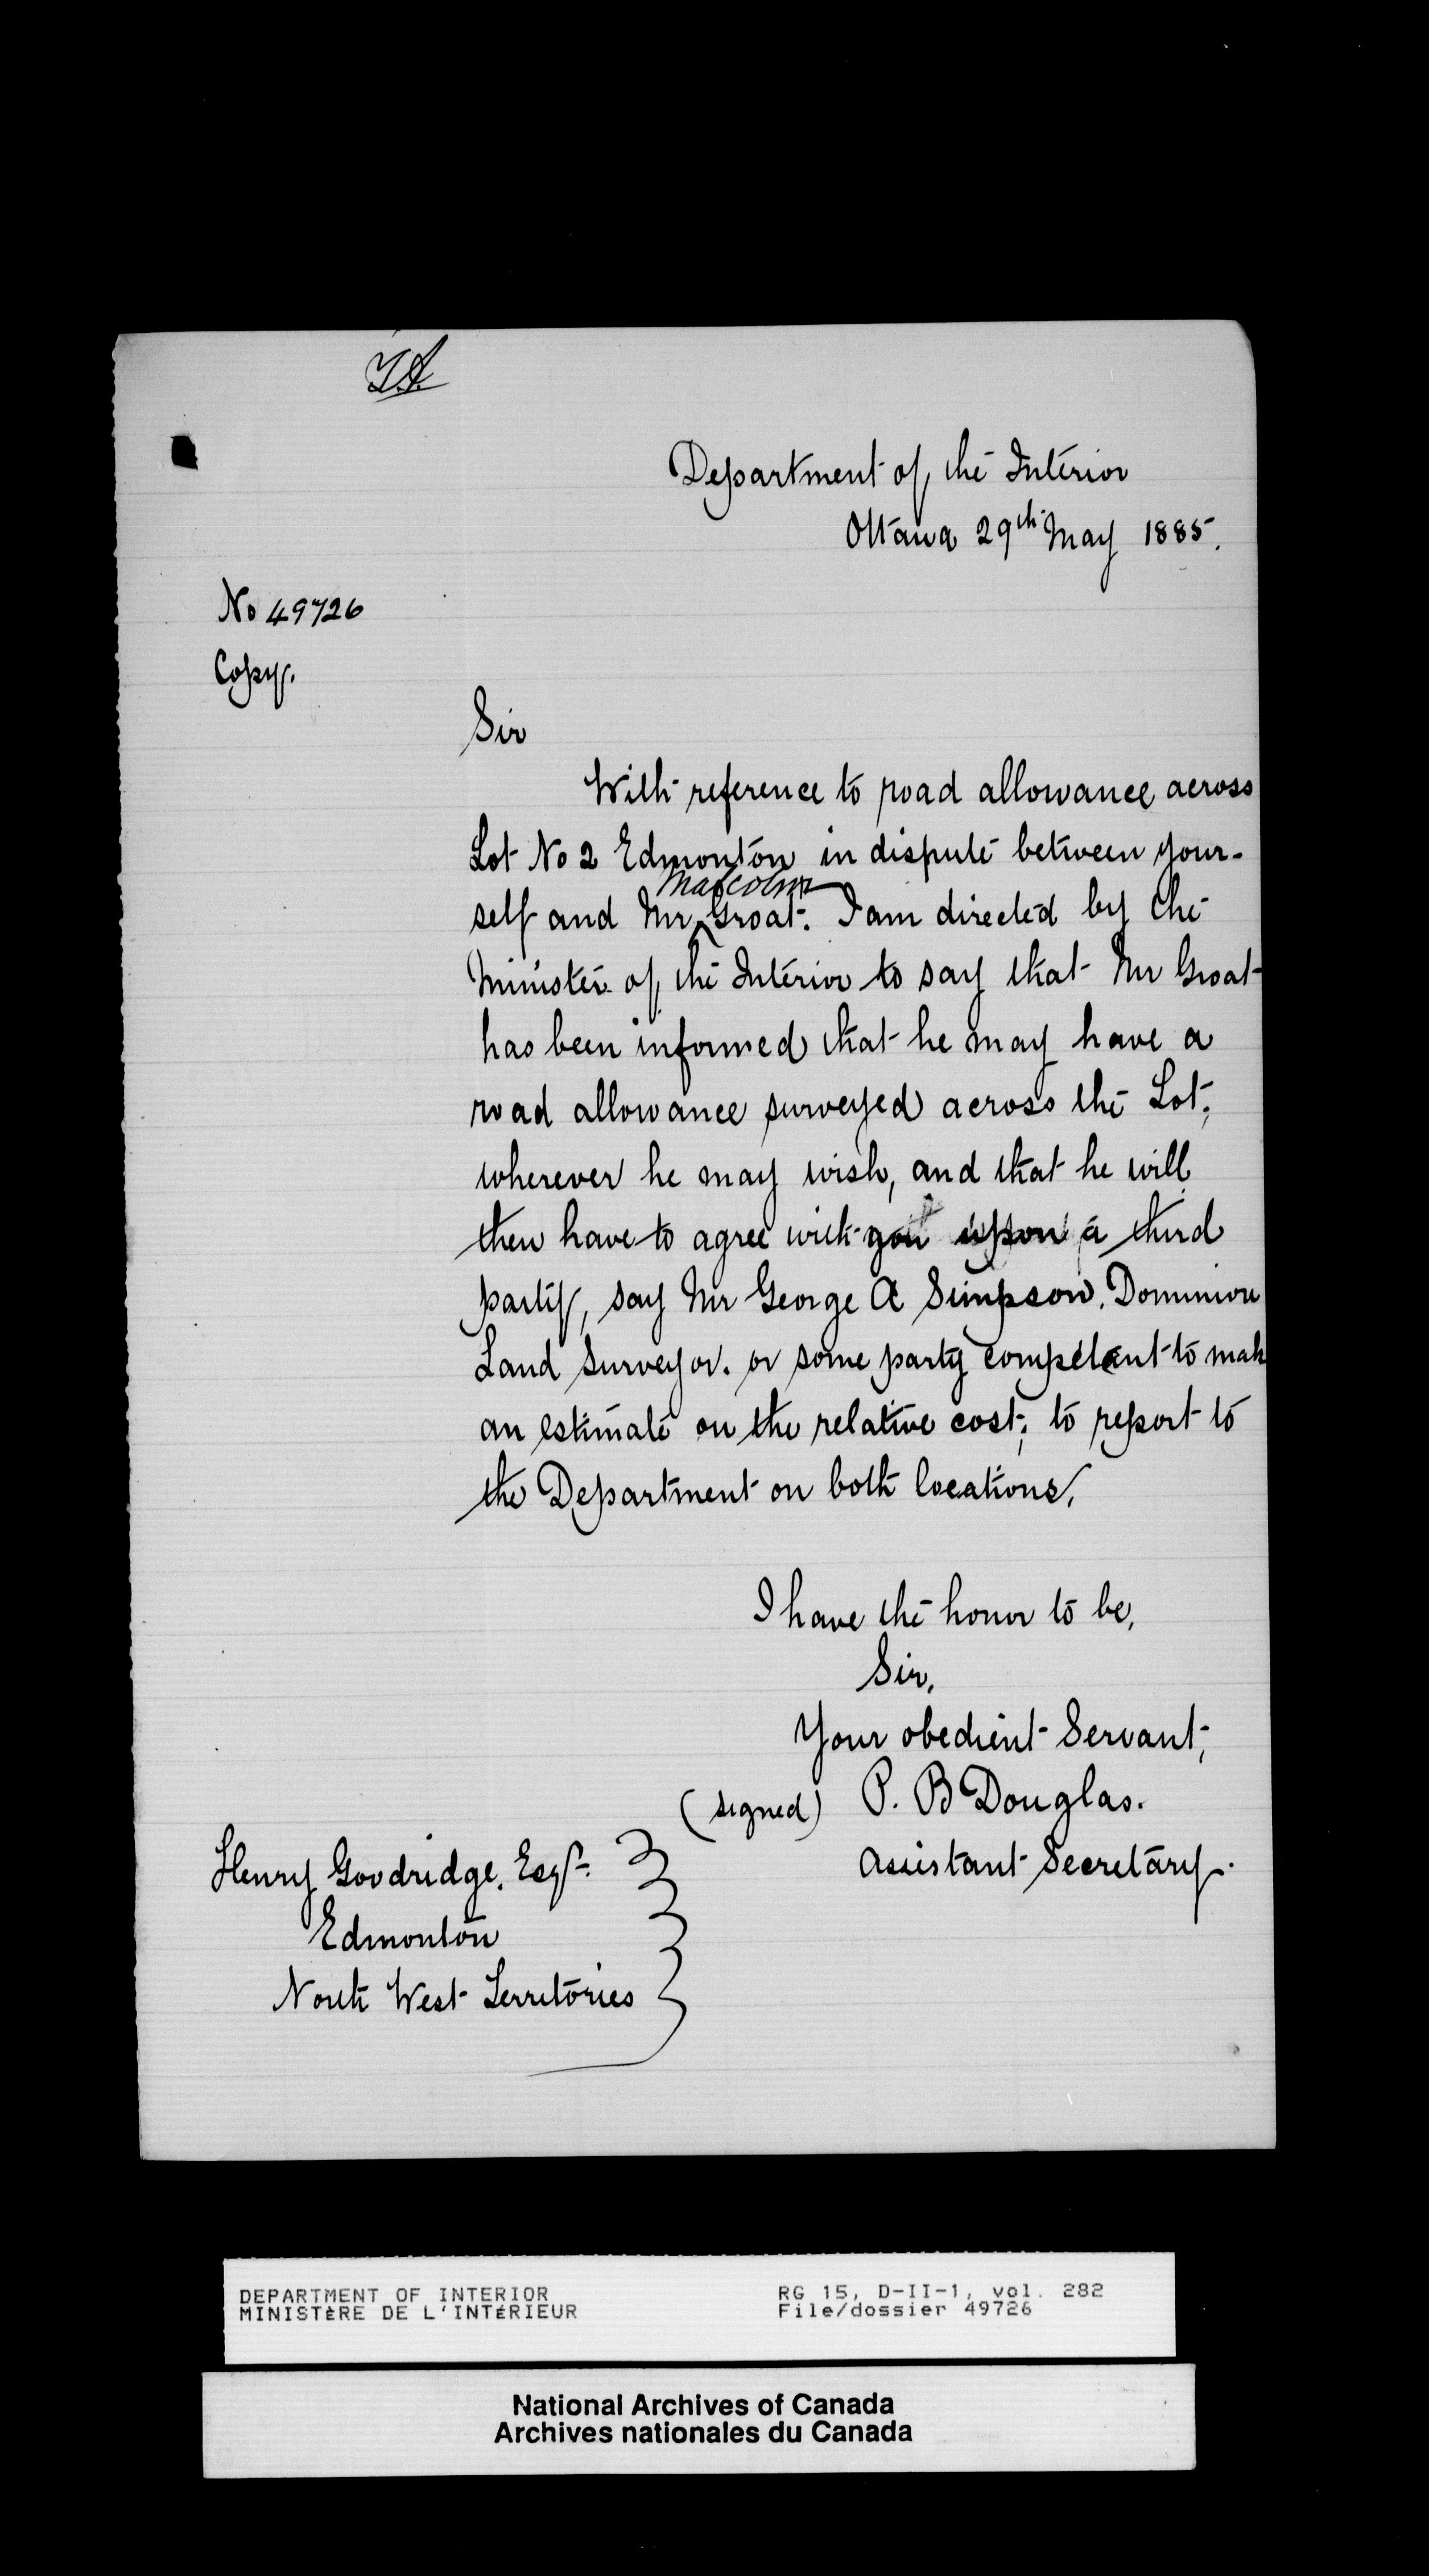 Department of the Interior
Ottawa 29th May 1885.
No 49726
Copy.
Sir
With reference to road allowance across
Lot No 2 Edmonton in dispute between your-
Malcolm
self and Mr Groat. I am directed by the
Minister of the Interior to say that Mr Groat
has been informed that he may have a
road allowance surveyed across the Lot,
wherever he may wish, and that he will
then have to agree with you upon a third
party, say Mr George A Simpson, Dominion
Land Surveyor. or some party competent to mak
an estimate on the relative cost; to report to
the Department on both locations.
I have the honor to be,
Sir,
Your obedient Servant,
(signed) P. B Douglas.
Assistant Secretary.
Henry Goodridge, Esqr.
Edmonton
North West Territories
DEPARTMENT OF INTERIOR RG 15, D-II-1, vol. 282
MINISTÈRE DE L'INTÉRIEUR File/dossier 49726
National Archives of Canada
Archives nationales du Canada